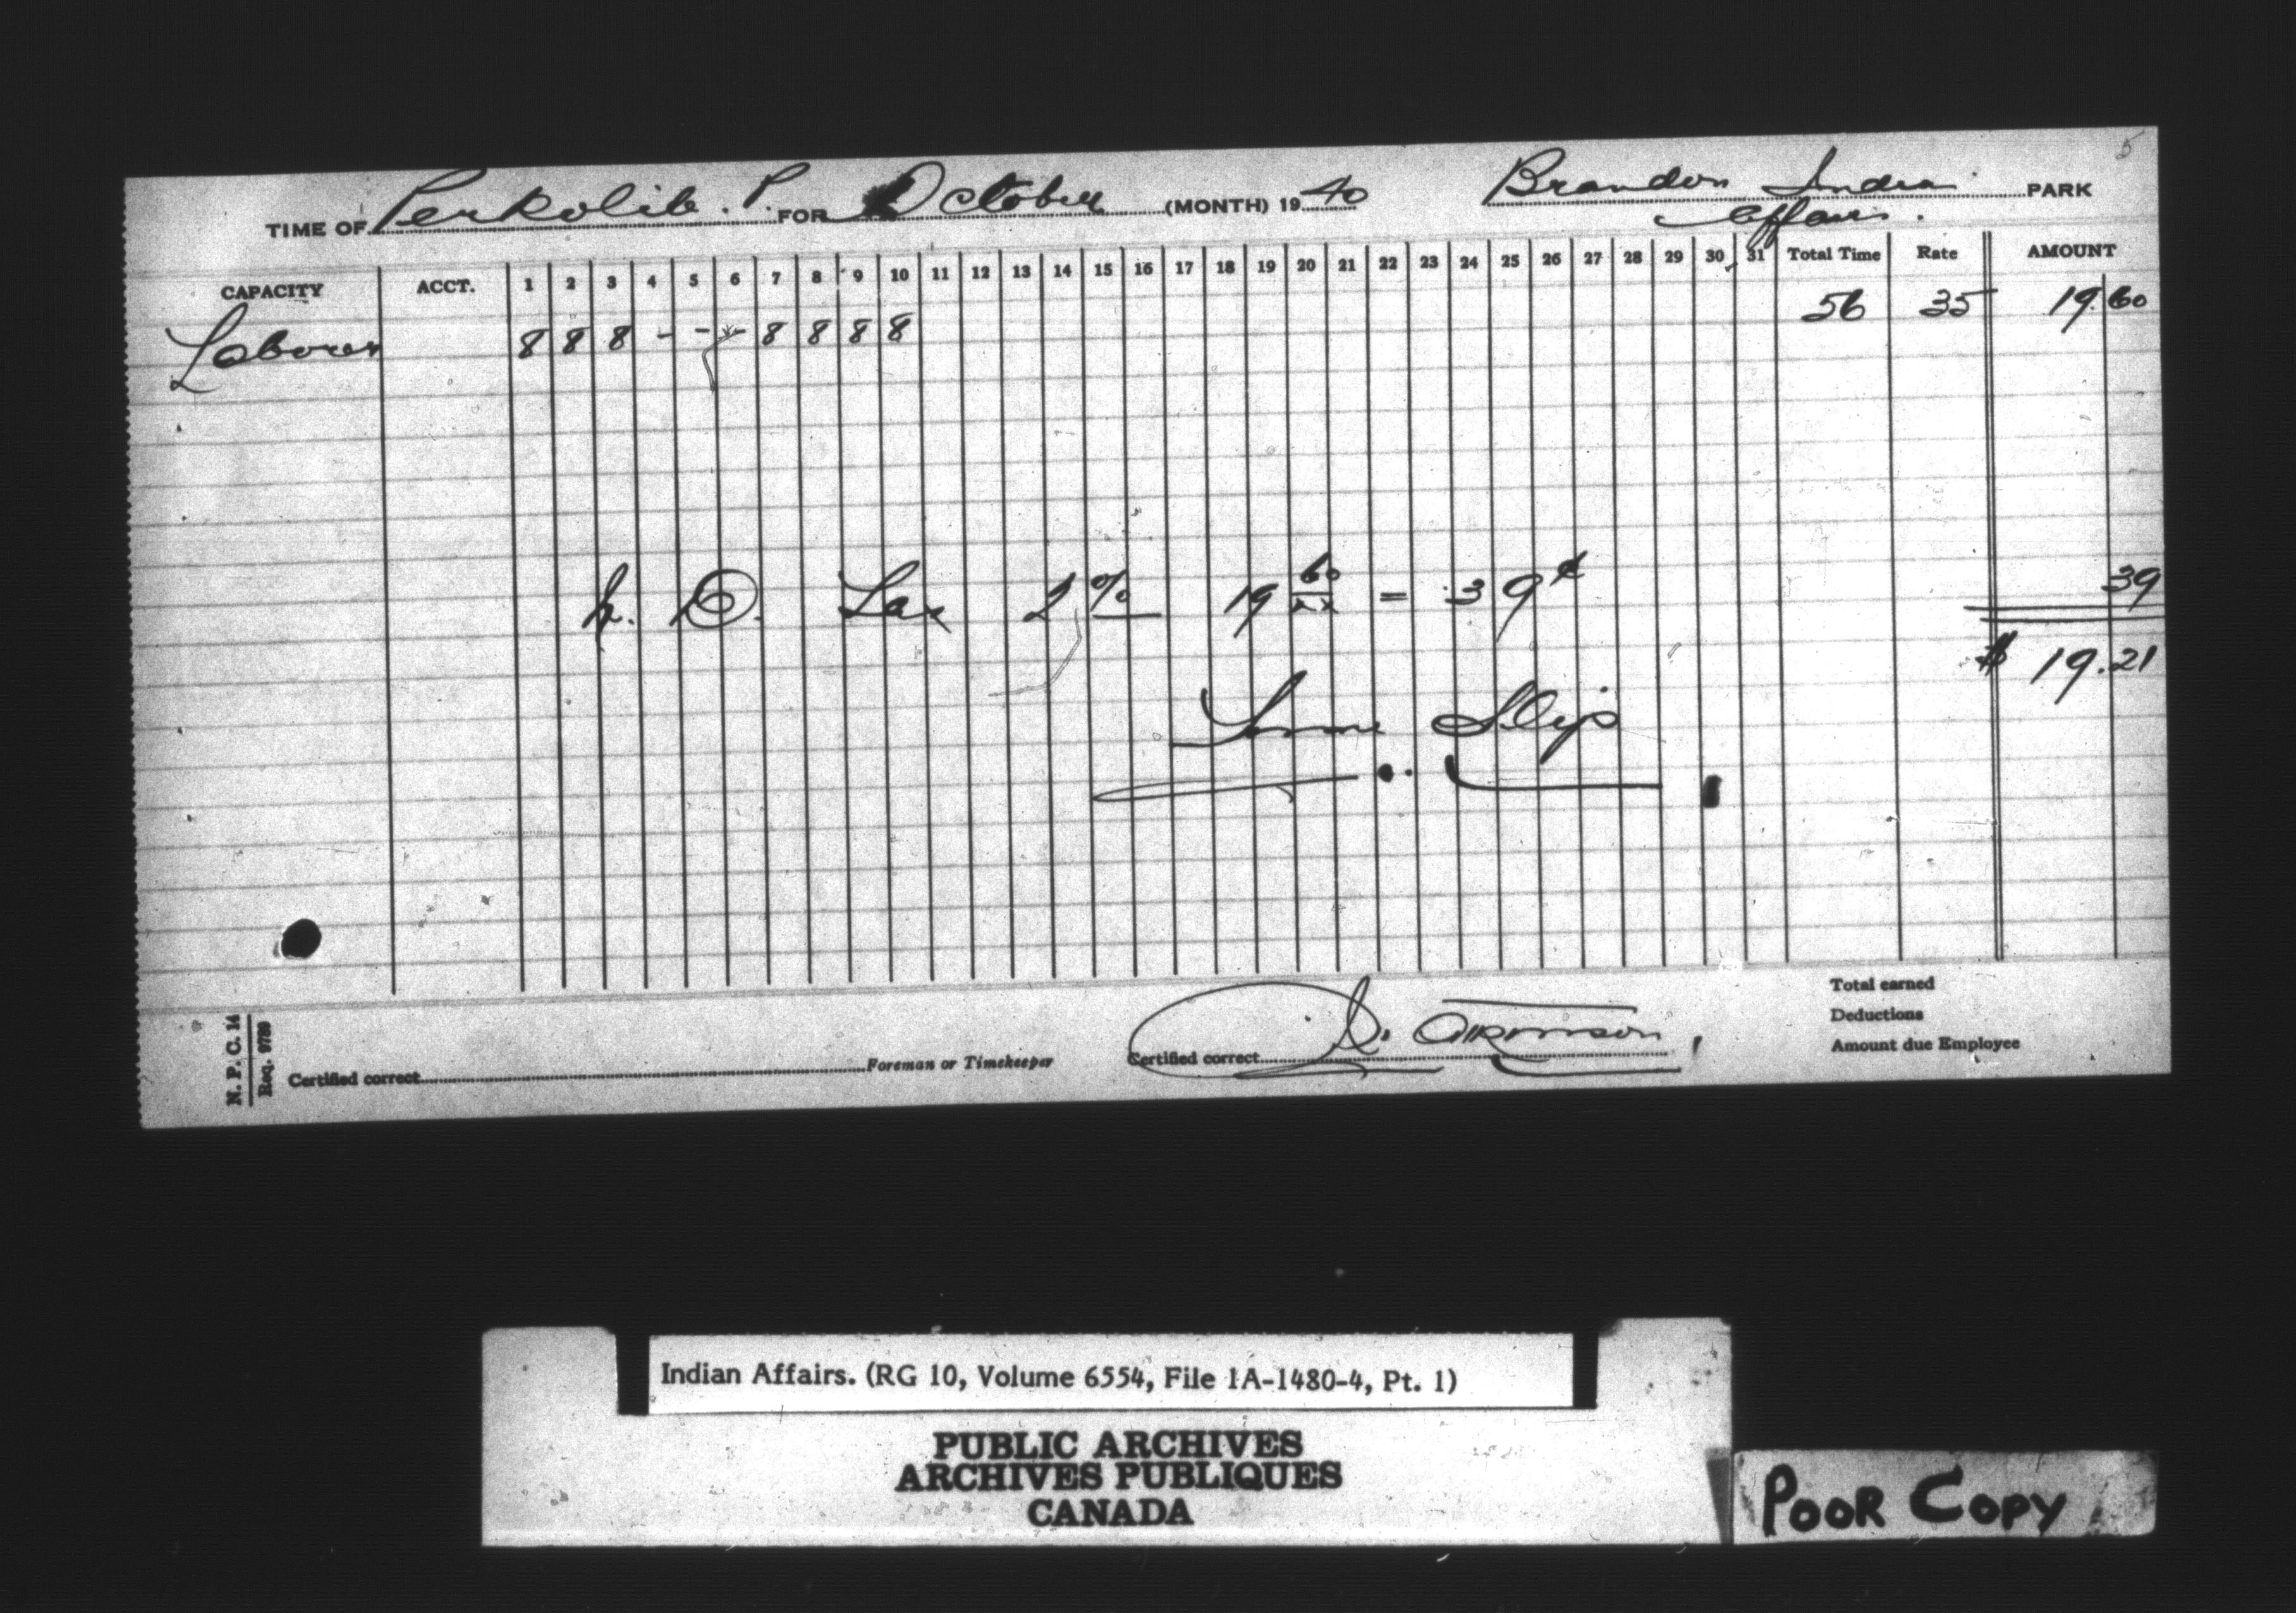 5
TIME OF Perkolib. P. FOR October (MONTH) 1940 Brandon India PARK
Affairs.
CAPACITY ACCT. 1 2 3 4 5 6 7 8 9 10 11 12 13 14 15 16 17 18 19 20 21 22 23 24 25 26 27 28 29 30 31 Total Time Rate AMOUNT
Laborer 8 8 8 - - - 8 8 8 8 56 35 19.60
N. D. Tax 2% 19 60/xx = 39¢ 39
$ 19.21
Time Slip
N. P. C. 14
Req. 9789
Certified correct Foreman or Timekeeper
Certified correct D. Atkinson
Total earned
Deductions
Amount due Employee
Indian Affairs. (RG 10, Volume 6554, File 1A-1480-4, Pt. 1)
PUBLIC ARCHIVES
ARCHIVES PUBLIQUES
CANADA
POOR COPY